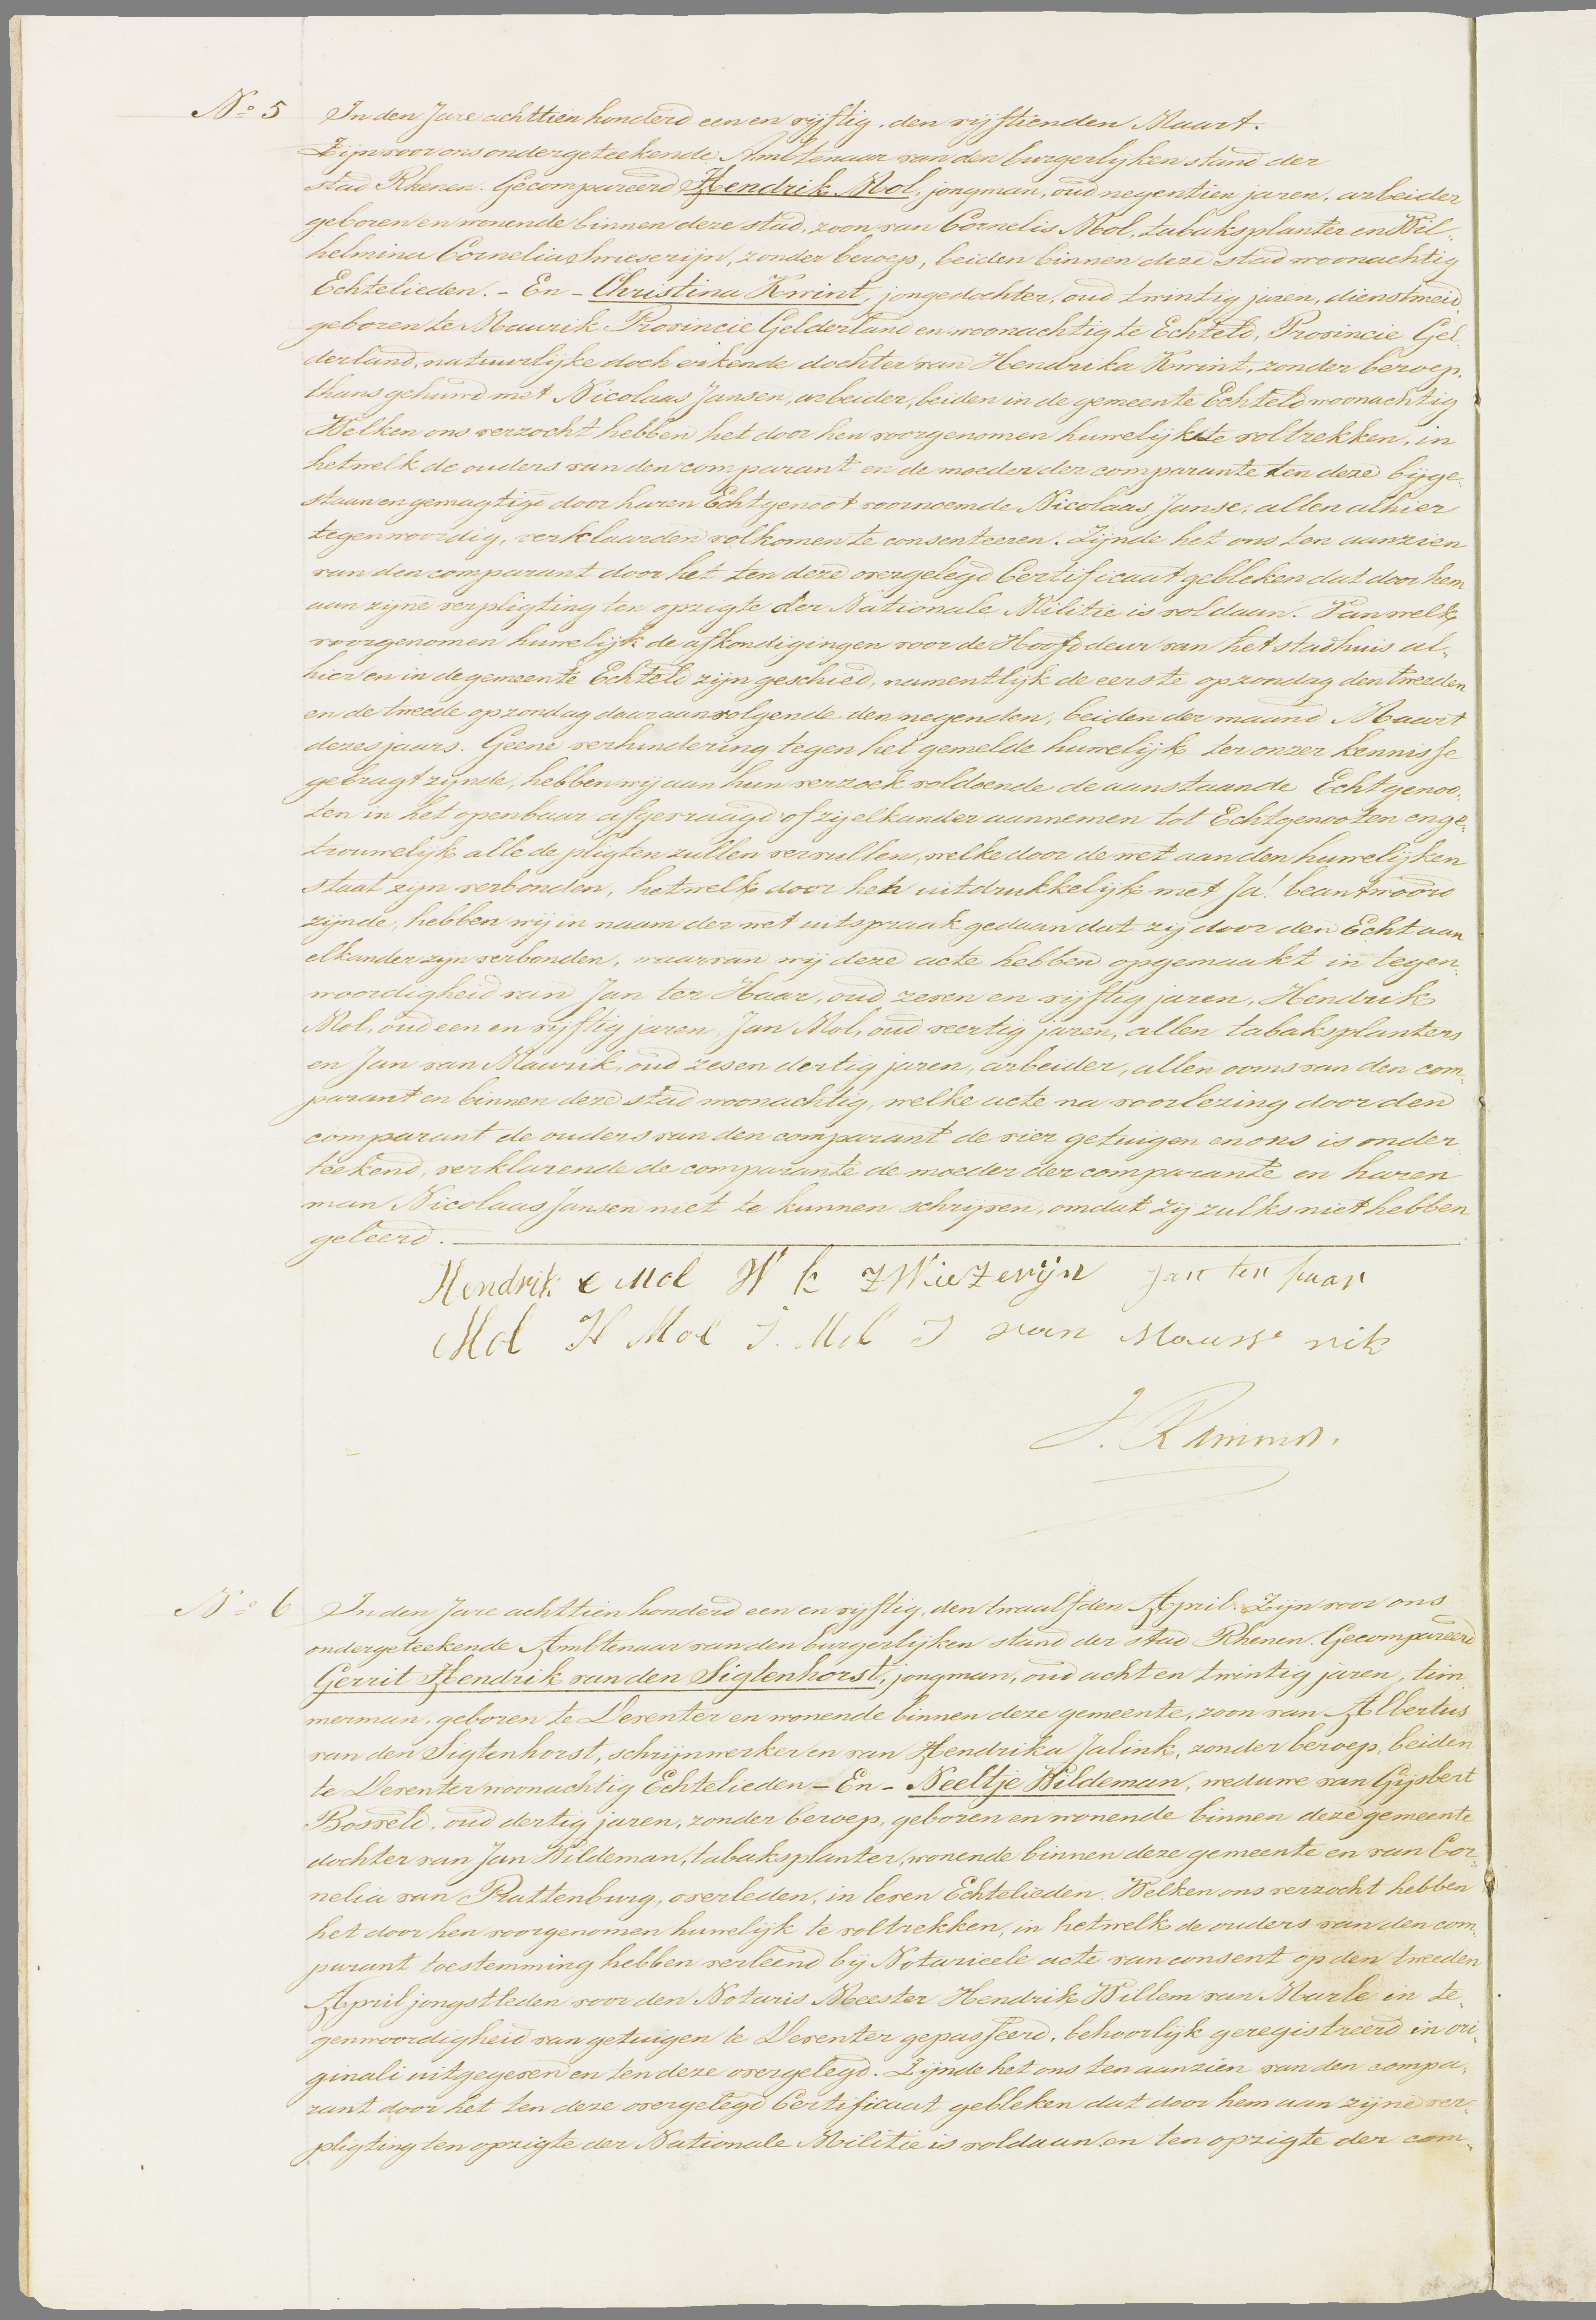 No 5 In den Jare achttien honderd een en vijftig, den vijftienden Maart.
Zijn voor ons ondergeteekende Ambtenaar van den burgerlijken stand der
stad Rhenen. Gecompareerd Hendrik Mol, jongman, oud negentien jaren, arbeider
geboren en wonende binnen deze stad, zoon van Cornelis Mol, tabaksplanter en Wil-
helmina Cornelia Swieserijn, zonder beroep, beiden binnen deze stad woonachtig
Echtelieden. - En - Christina Kwint, jongedochter, oud twintig jaren, dienstmeid
geboren te Maurik Provincie Gelderland en woonachtig te Echteld, Provincie Gel-
derland, natuurlijke doch erkende dochter van Hendrika Kwint, zonder beroep.
thans gehuwd met Nicolaas Jansen, arbeider, beiden in de gemeente Echteld woonachtig
Welken ons verzocht hebben het door hen voorgenomen huwelijk te voltrekken, in
hetwelk de ouders van den comparant en de moeder der comparante ten deze bijge-
staan en gemagtigd door haren Echtgenoot voornoemde Nicolaas Janse, allen alhier
tegenwoordig, verklaarden volkomen te consenteeren. Zijnde het ons ten aanzien
van den comparant door het ten deze overgelegd Certificaat gebleken dat door hem
aan zijne verpligting ten opzigte der Nationale Militie is voldaan. Van welk
voorgenomen huwelijk de afkondigingen voor de Hoofddeur van het stadhuis al-
hier en in de gemeente Echteld zijn geschied, namentlijk de eerste op zondag den tweeden
en de tweede op zondag daaraanvolgende den negenden, beiden der maand Maart
dezes jaars. Geene verhindering tegen het gemelde huwelijk ter onzer kennisse
gebragt zijnde, hebben wij aan hun verzoek voldoende de aanstaande Echtgenoo-
ten in het openbaar afgevraagd of zij elkander aannemen tot Echtgenooten en ge-
trouwelijk alle de pligten zullen vervullen, welke door de wet aan den huwelijken
staat zijn verbonden, hetwelk door hen uitdrukkelijk met Ja! beantwoord
zijnde, hebben wij in naam der wet uitspraak gedaan dat zij door den Echt aan
elkander zijn verbonden, waarvan wij deze acte hebben opgemaakt in tegen-
woordigheid van Jan ter Haar, oud zeven en vijftig jaren, Hendrik
Mol, oud een en vijftig jaren, Jan Mol, oud veertig jaren, allen tabaksplanters
en Jan van Maurik, oud zes en dertig jaren, arbeider, allen ooms van den com-
parant en binnen deze stad woonachtig, welke acte na voorlezing door den
comparant de ouders van den comparant de vier getuigen en ons is onder-
teekend, verklarende de comparante de moeder der comparante en haren
man Nicolaas Jansen niet te kunnen schrijven, omdat zij zulks niet hebben
geleerd.
Hendrik C Mol W k zWiezerijn Jan ten haar
Mol H Mol J. Mol J van Maurik
No 6 In den Jare achttien honderd een en vijftig, den twaalfden April. Zijn voor ons
ondergeteekende Ambtenaar van den burgerlijken stand der stad Rhenen. Gecompareerd
Gerrit Hendrik van den Sigtenhorst, jongman, oud acht en twintig jaren, tim
merman, geboren te Deventer en wonende binnen deze gemeente, zoon van Albertus
van den Sigtenhorst, schrijnwerker en van Hendrika Jalink, zonder beroep, beiden
te Deventer woonachtig Echtelieden - En - Neeltje Wildeman, weduwe van Gijsbert
Bosveld, oud dertig jaren, zonder beroep, geboren en wonende binnen deze gemeente
dochter van Jan Wildeman, tabaksplanter, wonende binnen deze gemeente en van Cor-
nelia van Rattenburg, overleden, in leven Echtelieden. Welken ons verzocht hebben
het door hen voorgenomen huwelijk te voltrekken, in hetwelk de ouders van den com-
parant toestemming hebben verleend bij Notarieele acte van consent op den tweeden
April jongstleden voor den Notaris Meester Hendrik Willem van Marle in te-
genwoordigheid van getuigen te Deventer gepasseerd, behoorlijk geregistreerd in ori-
ginali uitgegeven en ten deze overgelegd. Zijnde het ons ten aanzien van den compa-
rant door het ten deze overgelegd Certificaat gebleken dat door hem aan zijne ver-
pligting ten opzigte der Nationale Militie is voldaan en ten opzigte der com-